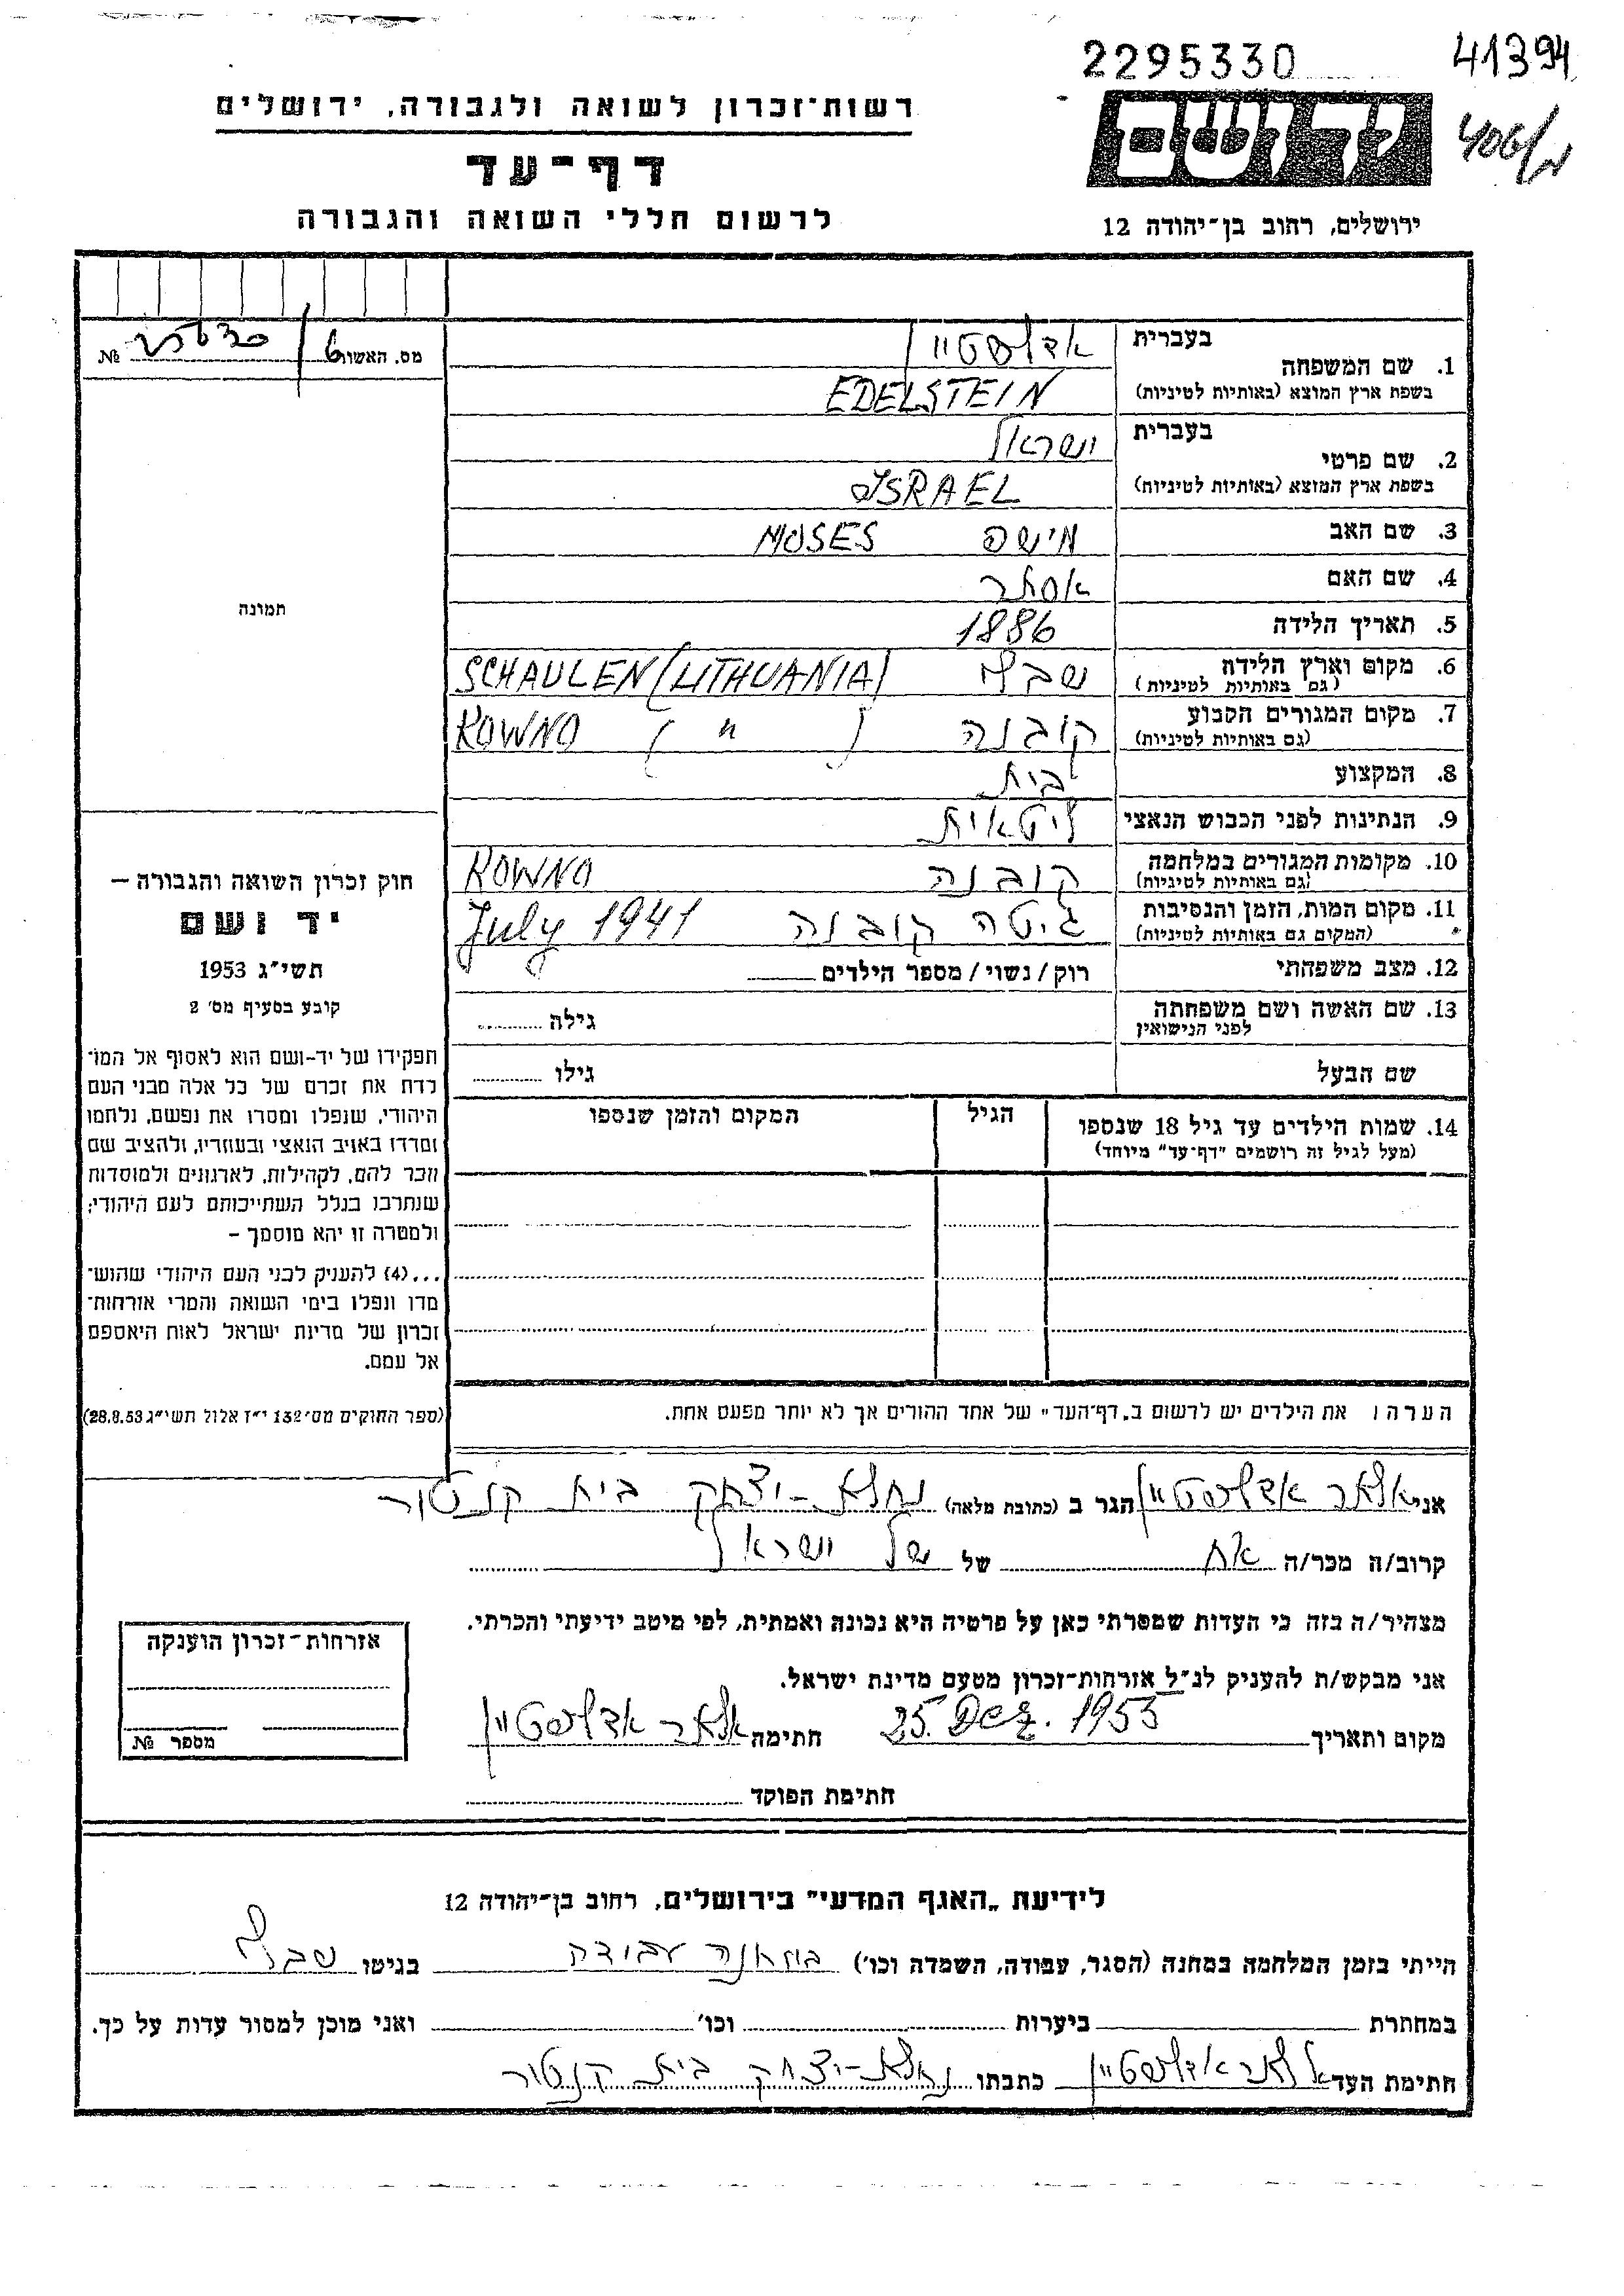 2295330
41394
רשות־זכרון לשואה ולגבורה, ירושלים
דף־עד
לרשום חללי השואה והגבורה
ירושלים, רחוב בן־יהודה 12
מס. האשור
№
בעברית
1. שם המשפחה
אדלשטיין
בשפת ארץ המוצא (באותיות לטיניות)
EDELSTEIN
בעברית
2. שם פרטי
ישראל
בשפת ארץ המוצא (באותיות לטיניות)
ISRAEL
3. שם האב
MOSES
4. שם האם
אסתר
5. תאריך הלידה
1886
6. מקום וארץ הלידה
(גם באותיות לטיניות)
שבלי SCHAULEN (LITHUANIA)
7. מקום המגורים הקבוע
(גם באותיות לטיניות)
קובנה KOWNO ( " )
8. המקצוע
9. הנתינות לפני הכבוש הנאצי
ליטאית
10. מקומות המגורים במלחמה
(גם באותיות לטיניות)
קובנה KOWNO
11. מקום המות, הזמן והנסיבות
(המקום גם באותיות לטיניות)
גיטה קובנה July 1941
12. מצב משפחתי
רוק / נשוי / מספר הילדים
13. שם האשה ושם משפחתה
לפני הנישואין
גילה
שם הבעל
גילו
14. שמות הילדים עד גיל 18 שנספו
(מעל לגיל זה רושמים "דף־עד" מיוחד)
הגיל
המקום והזמן שנספו
הערה: את הילדים יש לרשום ב„דף־העד" של אחד ההורים אך לא יותר מפעם אחת.
תמונה
חוק זכרון השואה והגבורה —
יד ושם
תשי״ג 1953
קובע בסעיף מס׳ 2
תפקידו של יד-ושם הוא לאסוף אל המו־
לדת את זכרם של כל אלה מבני העם
היהודי, שנפלו ומסרו את נפשם, נלחמו
ומרדו באויב הנאצי ובעוזריו, ולהציב שם
וזכר להם, לקהילות, לארגונים ולמוסדות
שנחרבו בגלל השתייכותם לעם היהודי;
ולמטרה זו יהא מוסמך –
...(4) להעניק לבני העם היהודי שהוש־
מדו ונפלו בימי השואה והמרי אזרחות־
זכרון של מדינת ישראל לאות היאספם
אל עמם.
(ספר החוקים מס׳ 132 י״ז אלול תשי״ג 28.8.53)
אני אלתר אדלשטיין הגר ב (כתובת מלאה) נחלת-יצחק בית קנטור
קרוב/ה מכר/ה אח של של ישראל
מצהיר/ה בזה כי העדות שמסרתי כאן על פרטיה היא נכונה ואמתית, לפי מיטב ידיעתי והכרתי.
אני מבקש/ת להעניק לנ״ל אזרחות־זכרון מטעם מדינת ישראל.
מקום ותאריך 25. Dez. 1955 חתימה אלתר אדלשטיין
חתימת הפוקד
אזרחות־זכרון הוענקה
מספר №
לידיעת „האגף המדעי" בירושלים, רחוב בן־יהודה 12
הייתי בזמן המלחמה במחנה (הסגר, עבודה, השמדה וכו׳) במחנה עבודה בגיטו שבלי
במחתרת ביערות וכו׳ ואני מוכן למסור עדות על כך.
חתימת העד אלתר אדלשטיין כתבתו נחלת-יצחק בית קנטור